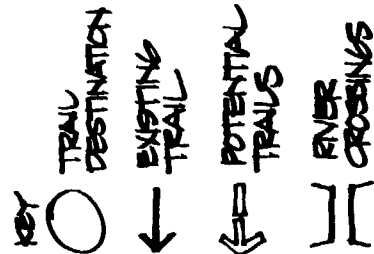 KEY
TRAIL
DESTINATION
EXISTING
TRAIL
POTENTIAL
TRAILS
RIVER
CROSSINGS